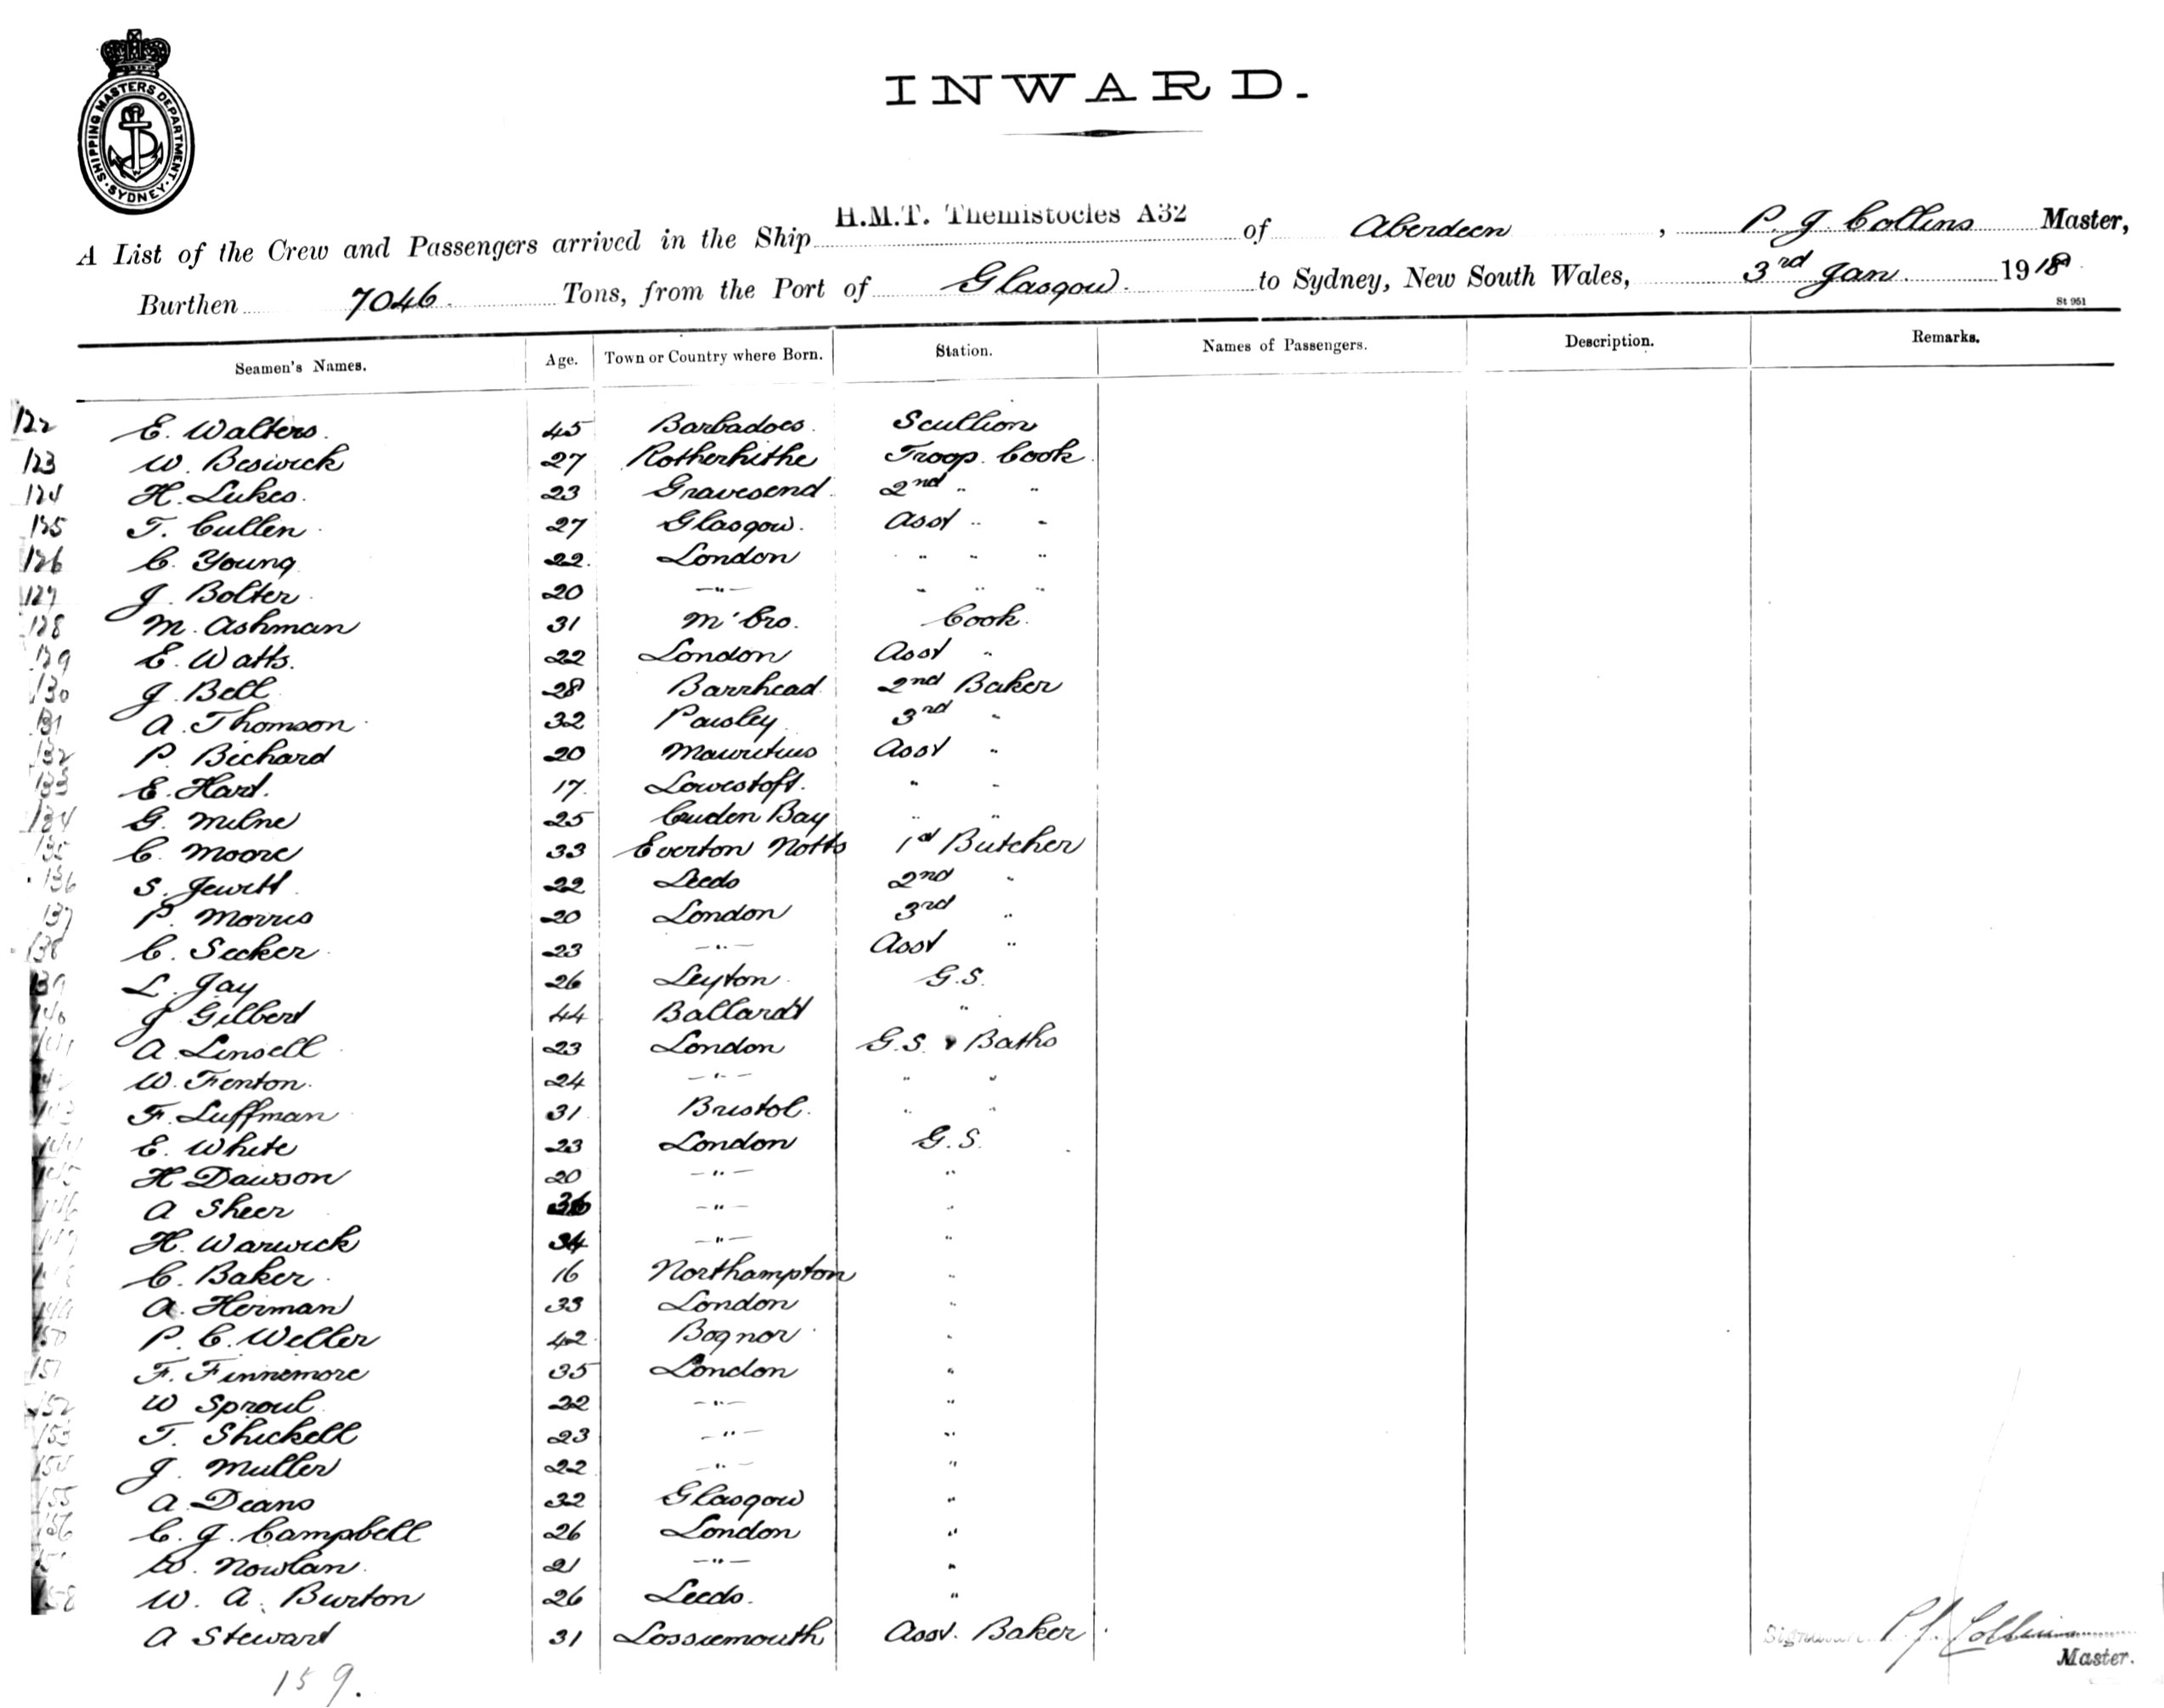 SHIPPING MASTERS DEPARTMENT
SYDNEY
INWARD.
H.M.T. Themistocles A32
A List of the Crew and Passengers arrived in the Ship of Aberdeen, P. J. Collins Master,
Burthen 7046 Tons, from the Port of Glasgow to Sydney, New South Wales, 3rd Jan 1918
St 951
Seamen's Names. Age. Town or Country where Born. Station. Names of Passengers. Description. Remarks.
122 E. Walters. 45 Barbadoes. Scullion
123 W. Beswick 27 Rotherhithe Troop Cook
124 H. Lukes. 23 Gravesend 2nd " "
125 T. Cullen 27 Glasgow. Asst " "
126 C. Young 22. London " " "
127 J. Bolter 20 —"— " " "
128 M. Ashman 31 M'bro. Cook.
129 E. Watts. 22 London Asst "
130 J. Bell 28 Barrhead 2nd Baker
131 A. Thomson 32 Paisley 3rd "
132 P. Bichard 20 Mauritius Asst "
133 E. Hart. 17. Lowestoft. " "
134 G. Milne 25 Cruden Bay " "
135 C. Moore 33 Everton Notts 1st Butcher
136 S. Jewitt 22 Leeds 2nd "
137 P. Morris 20 London 3rd "
138 C. Secker 23 —"— Asst "
139 L. Jay 26 Leyton G.S.
140 J Gilbert 44 Ballardt "
141 A. Linsell 23 London G.S. & Baths
142 W. Fenton. 24 —"— " "
143 F. Luffman 31 Bristol. " "
144 E. White 23 London G.S.
145 H Dawson 20 —"— "
146 A Sheer 36 —"— "
147 H. Warwick 34 —"— "
148 C. Baker 16 Northampton "
149 A. Herman 33 London "
150 P. C. Weller 42 Bognor "
151 F. Finnemore 35 London "
152 W Sproul 22 —"— "
153 T. Shickell 23 —"— "
154 J. Muller 22 —"— "
155 A. Deans 32 Glasgow "
156 C. J. Campbell 26 London "
157 W. Nowlan. 21 —"— "
158 W. A. Burton 26 Leeds. "
A Stewart 31 Lossiemouth Asst. Baker
159.
P J Collins
Master.